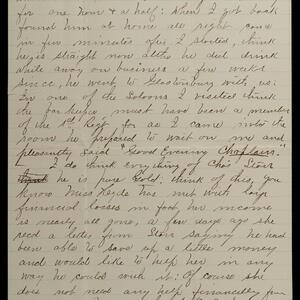 for one hour & a half; When I got back
found him at home all right came
in few minutes after I started, think
he is straight now altho he did drink
while away on business a few weeks
since, he went to with us;
In one of the Saloons I visited think
the bar keeper must have been a member
of the 1st Reg for as I came into the
room he prepared to wait on me and
pleasantly said "Good Evening Chaplain."
I do think everything of Chas Storr
he is pure Gold; think of this, you
know Miss Hyde has met with large
financial losses in fact, her income
is nearly all gone, a few days ago she
recd a letter from Storr saying he had
been able to save up a little money
and would like to help her in any
way he could with it; Of course she
does not need any help financially from